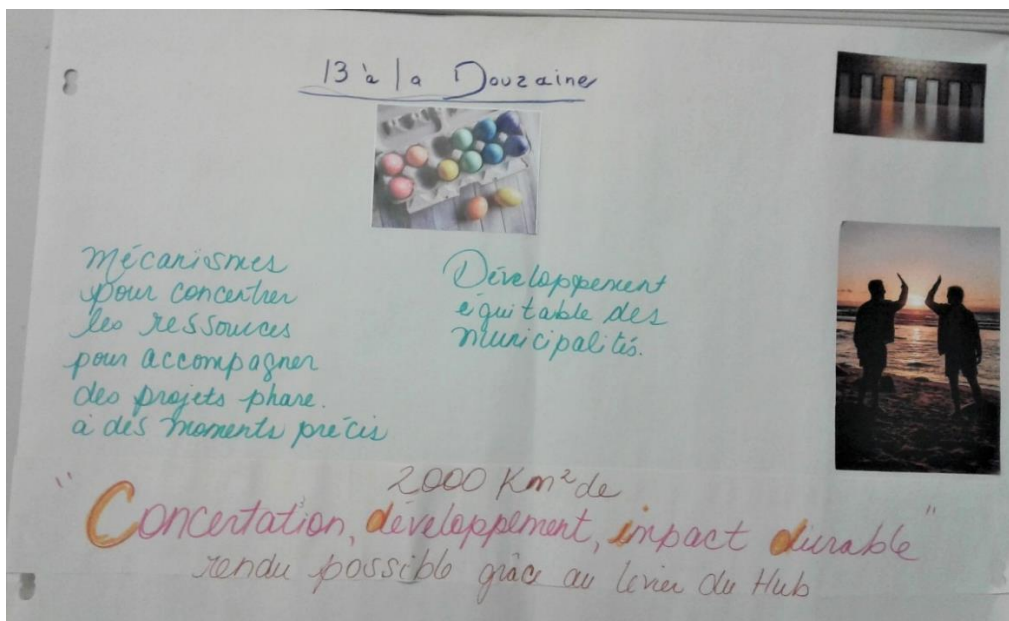 13 à la Douzaine
Mécanismes
pour concentrer
les ressources
pour accompagner
des projets phare.
à des moments précis
Développement
équitable des
municipalités.
2000 Km² de
"Concertation, développement, impact durable"
rendu possible grâce au levier du Hub